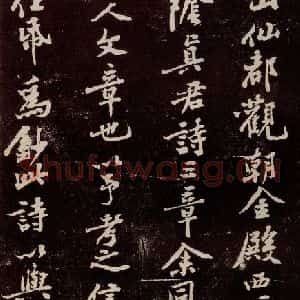 山仙都觀朝金殿西
陰真君詩三章余同
人文章也予考之信
為鈔此詩以與
Shufawang.cn